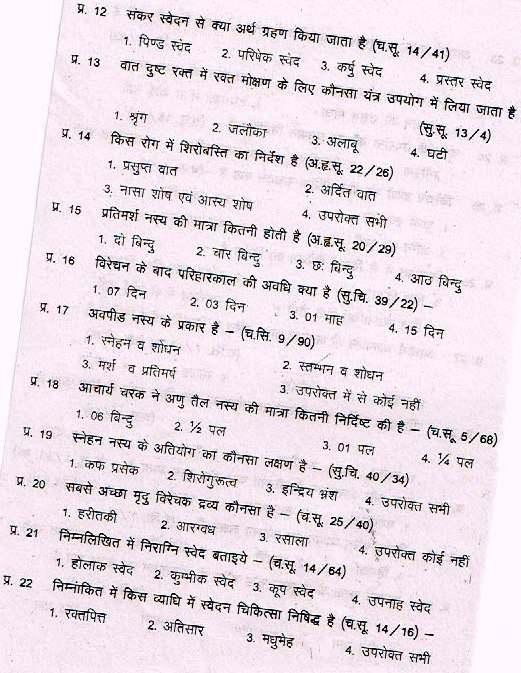 प्र. 12 संकर स्वेदन से क्या अर्थ ग्रहण किया जाता है (च.सू. 14/41)
1. पिण्ड स्वेद 2. परिषेक स्वेद 3. कर्षु स्वेद 4. प्रस्तर स्वेद
प्र. 13 वात दुष्ट रक्त में रक्त मोक्षण के लिए कौनसा यंत्र उपयोग में लिया जाता है
(सु.सू. 13/4)
1. श्रृंग 2. जलौका 3. अलाबू 4. घटी
प्र. 14 किस रोग में शिरोबस्ति का निर्देश है (अ.हृ.सू. 22/26)
1. प्रसुप्त वात 2. अर्दित वात
3. नासा शोष एवं आस्य शोष 4. उपरोक्त सभी
प्र. 15 प्रतिमर्श नस्य की मात्रा कितनी होती है (अ.हृ.सू. 20/29)
1. दो बिन्दु 2. चार बिन्दु 3. छः बिन्दु 4. आठ बिन्दु
प्र. 16 विरेचन के बाद परिहारकाल की अवधि क्या है (सु.चि. 39/22) –
1. 07 दिन 2. 03 दिन 3. 01 माह 4. 15 दिन
प्र. 17 अवपीड नस्य के प्रकार है – (च.सि. 9/90)
1. स्नेहन व शोधन 2. स्तम्भन व शोधन
3. मर्श व प्रतिमर्ष 3. उपरोक्त में से कोई नहीं
प्र. 18 आचार्य चरक ने अणु तैल नस्य की मात्रा कितनी निर्दिष्ट की है – (च.सू. 5/68)
1. 06 बिन्दु 2. ½ पल 3. 01 पल 4. ¼ पल
प्र. 19 स्नेहन नस्य के अतियोग का कौनसा लक्षण है – (सु.चि. 40/34)
1. कफ प्रसेक 2. शिरोगुरूत्व 3. इन्द्रिय भ्रंश 4. उपरोक्त सभी
प्र. 20 सबसे अच्छा मृदु विरेचक द्रव्य कौनसा है – (च.सू. 25/40)
1. हरीतकी 2. आरग्वध 3. रसाला 4. उपरोक्त कोई नहीं
प्र. 21 निम्नलिखित में निराग्नि स्वेद बताइये – (च.सू. 14/64)
1. होलाक स्वेद 2. कुम्भीक स्वेद 3. कूप स्वेद 4. उपनाह स्वेद
प्र. 22 निम्नांकित में किस व्याधि में स्वेदन चिकित्सा निषिद्ध है (च.सू. 14/16) –
1. रक्तपित्त 2. अतिसार 3. मधुमेह 4. उपरोक्त सभी